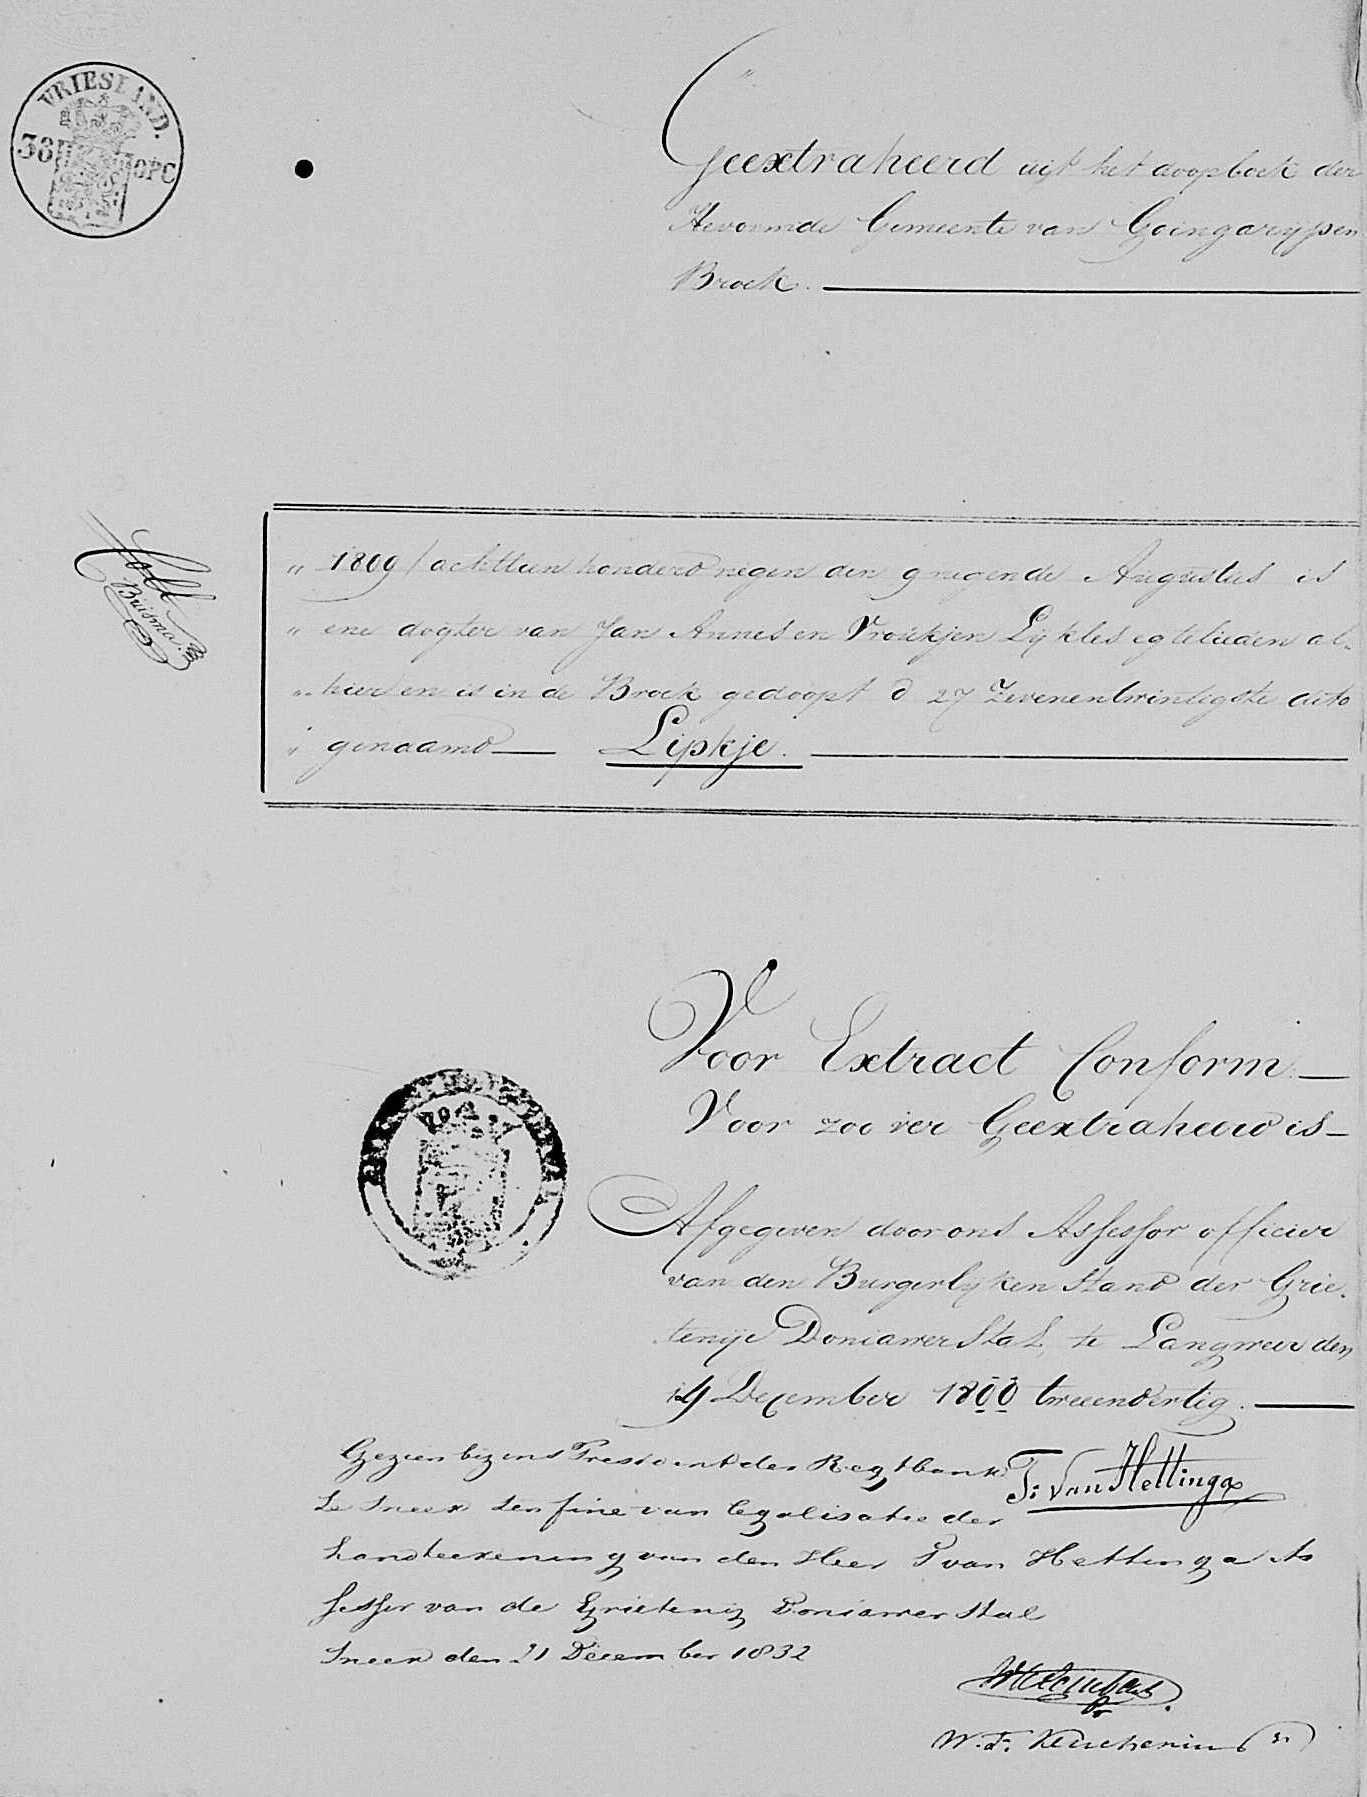 VRIESLAND.
38 OPC
Geextraheerd uijt het doopboek der
Hevormde Gemeente van Goingarijp en
Broek.
Coll
Buisma
" 1809 / achttien honderd negen den 9 negende Augustus is
" ene dogter van Jan Annes en Vroukjen Lykles egtelieden al-
" hier en is in de Broek gedoopt d 27 Zevenentwintigste dito
" genaamd Lipkje.
Voor Extract Conform
Voor zoo ver Geextraheerd is
Afgegeven door ons Assessor officier
van den Burgerlyken Stand der Grie-
tenije Doniawerstal, te Langweer den
14 December 1800 tweeendertig.
Gezien bij ons President der Regtbank
te Sneek ten fine van legalisatie der
T: van Hettinga
handteekening van den Heer T van Hettinga As
sessor van de Grietenij Doniawerstal
Sneek den 21 December 1832
W. F.